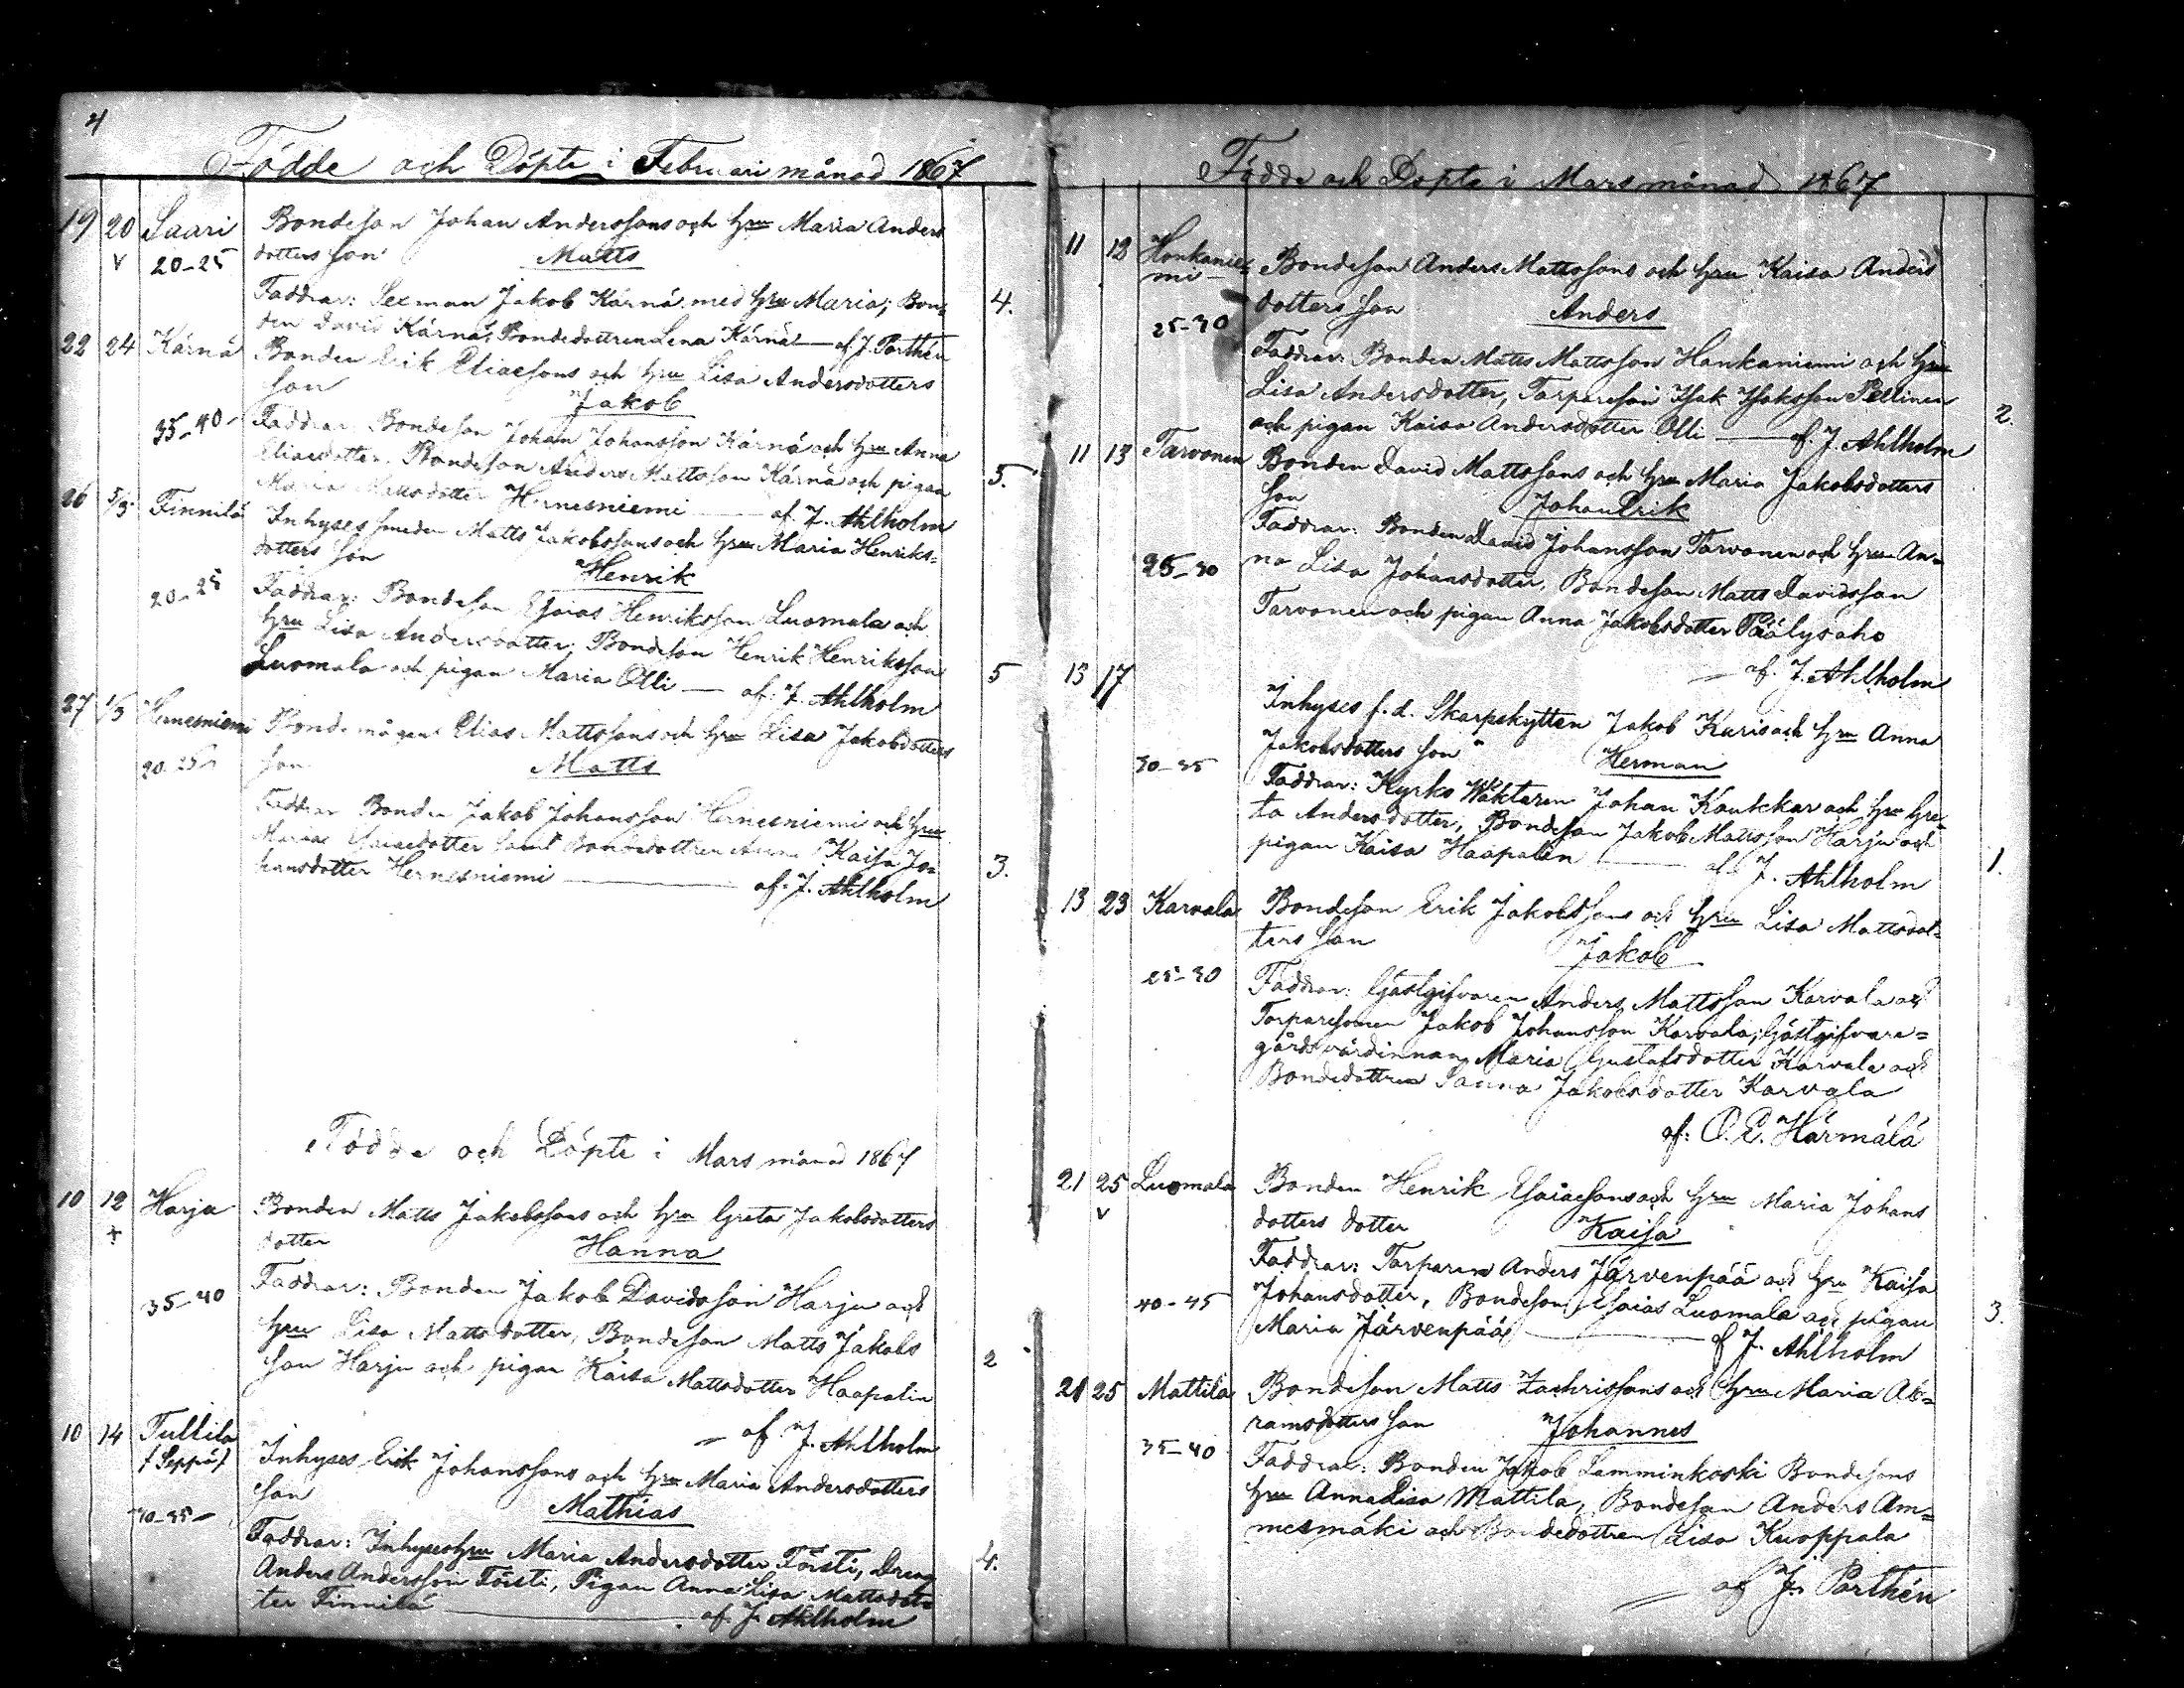 4
Födde och Döpte i Februari månad 1867
19 20 Saari Bondeson Johan Anderssons och hru Maria Anders
v 20-25 dotters son Matts
Faddrar: Sexman Jakob Kärnä med hru Maria; Bon- 4.
den David Kärnä, Bondedottren Lena Kärnä — af J. Porthén
22 24 Kärnä Bonden Erik Eliassons och hru Lisa Andersdotters
son Jakob
35-40- Faddrar: Bondeson Johan Johansson Kärnä och hru Anna
Eliasdotter, Bondeson Anders Mattsson Kärnä och pigan 5.
Maria Mattsdotter Hernesniemi — af. J. Ahlholm
26 5/3 Finnilä Inhyses smeden Matts Jakobssons och hru Maria Henriks-
dotters son Henrik
20-25 Faddrar: Bondeson Esaias Henriksson Luomala och
hru Lisa Andersdotter; Bondeson Henrik Henriksson
Luomala och pigan Maria Olli — af: J. Ahlholm 5
27 1/3 Hernesniemi Bondemågens Elias Mattssons och hru Lisa Jakobsdotters
20-25 son Matts
Faddrar Bonden Jakob Johansson Hernesniemi och hru
Maria Esaiasdotter samt Bondedottren Anna Kaisa Jo- 3.
hansdotter Hernesniemi — af: J. Ahlholm
Födde och Döpte i Mars månad 1867
10 12 Harju Bonden Matts Jakobssons och hru Greta Jakobsdotters
+ dotter Hanna
35-40 Faddrar: Bonden Jakob Davidsson Harju och
hru Lisa Mattsdotter, Bondeson Matts Jakobs
son Harju och pigan Kaisa Mattsdotter Haapalin 2
— af J. Ahlholm
10 14 Tullila Inhyses Erik Johanssons och hru Maria Andersdotters
/Seppä/ son Mathias
30-35- Faddrar: Inhyseshru Maria Andersdotter Töisti, Dreng
Anders Andersson Töisti, Pigan Anna Lisa Mattsdot- 4.
ter Finnilä — af. J. Ahlholm
Födde och Döpte i Mars månad 1867
11 12 Honkanie- Bondeson Anders Mattssons och hru Kaisa Anders
mi — dotters son Anders
25-30 Faddrar: Bonden Matts Mattsson Hankaniemi och hru
Lisa Andersdotter, Torpareson Isak Isaksson Pellinen 2.
och pigan Kaisa Andersdotter Olli — af. J. Ahlholm
11 13 Tarvonen Bonden David Mattssons och hru Maria Jakobsdotters
son Johan Erik
Faddrar: Bonden David Johansson Tarvonen och hru An-
25-30 na Lisa Johansdotter, Bondeson Matts Davidsson
Tarvonen och pigan Anna Jakobsdotter Päälysaho
— af. J. Ahlholm
13 17 Inhyses f.d. Skarpskytten Jakob Kuris och hru Anna
Jakobsdotters son Herman
30-35 Faddrar: Kyrko Wäktaren Johan Koukkar och hru Gre-
ta Andersdotter, Bondeson Jakob Mattsson Harju och
pigan Kaisa Haapalin — af J. Ahlholm 1.
13 23 Karvala Bondeson Erik Jakobssons och hru Lisa Mattsdot-
ters son Jakob
25-30 Faddrar: Gästgifvaren Anders Mattsson Karvala och
Torparesonen Jakob Johansson Karvala; Gästgifvare=
gårdsvärdinnan Maria Gustafsdotter Karvala och
Bondedottren Sanna Jakobsdotter Karvala
af: O. E. Härmälä
21 25 Luomala Bonden Henrik Esaiassons och hru Maria Johans
v dotters dotter Kaisa
Faddrar: Torparen Anders Järvenpää och hru Kaisa
40-45 Johansdotter, Bondeson Esaias Luomala och pigan 3.
Maria Järvenpää — af J. Ahlholm
21 25 Mattila Bondeson Matts Zachrissons och hru Maria Ab-
ramsdotters son Johannes
35-40 Faddrar: Bonden Jakob Lamminkoski Bondesons
hru Anna Lisa Mattila, Bondeson Anders Am=
mesmäki och Bondedottren Lisa Kuoppala
— af J. Porthén